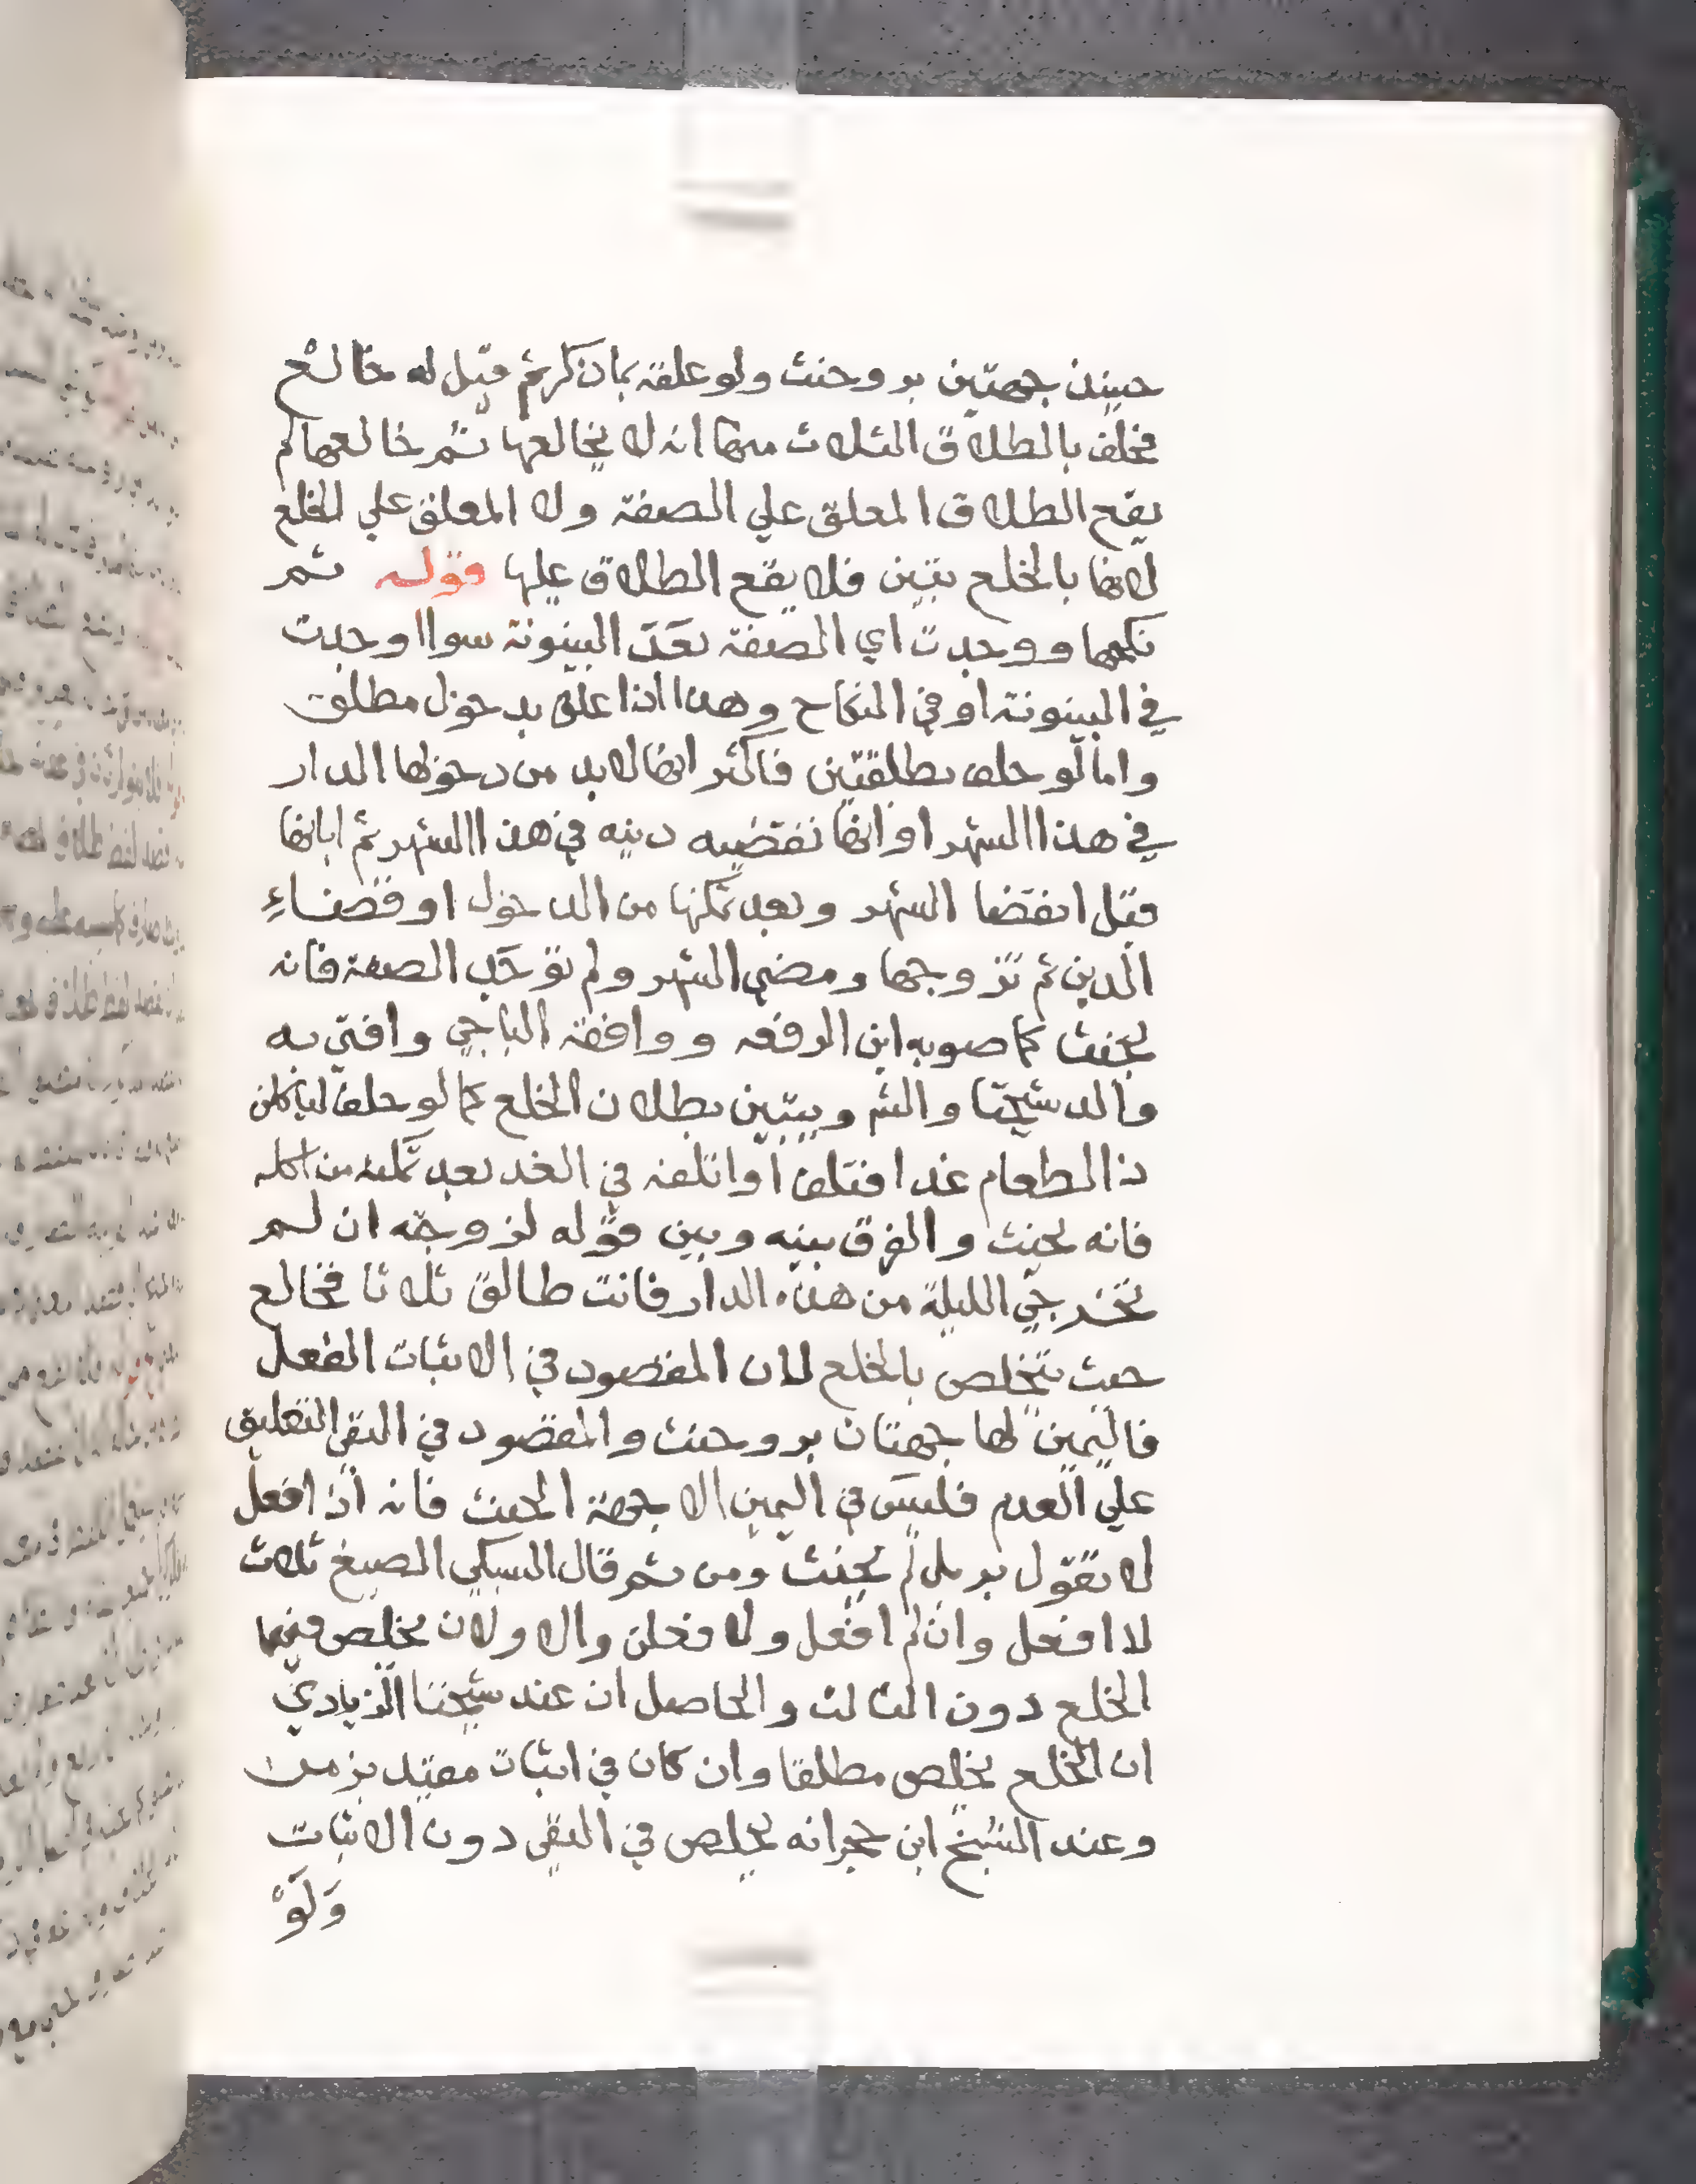 حينئذ جهتين بر وحنث ولو علقه بمان كريم قيل له خالع
فحلف بالطلاق الثلاث منها انه لا يخالعها ثم خالعها لم
يقع الطلاق المعلق علي الصفة ولا المعلق علي الخلع
لانها بالخلع تبين فلا يقع الطلاق عليها قوله ثم
نكحها ووجدت اي الصفة بعد البينونة سواا وجدت
في البينونة او في النكاح وهذا اذا علق بدخول مطلق
واما لو حلف بطلقتين فاكثر انها لا بد من دخولها الدار
في هذا الشهر او انها تقضيه دينه في هذا الشهر ثم ابانها
قبل انقضا الشهر وبعد تمكنها من الدخول او قضاءِ
الدين ثم تزوجها ومضي الشهر ولم توجد الصفة فانه
يحنث كما صوبه ابن الرفعه ووافقه الباجي وافتي به
والد شيخنا والشم ويتبين بطلان الخلع كما لو حلف لياكلن
ذا الطعام غدا فتلف او اتلفه في الغد بعد تمكنه من اكله
فانه يحنث والفرق بينه وبين قوله لزوجته ان لم
تخرجي الليلة من هذه الدار فانت طالق ثلاثا فخالع
حيث يتخلص بالخلع لان المقصود في الاثبات الفعل
فاليمين لها جهتان بر وحنث والمقصود في النفي التعليق
علي العدم فليس في اليمين الا جهة الحنث فانه اذا فعل
لا نقول بر بل لم يحنث ومن ثم قال السبكي الصيغ ثلاث
لا افعل وان لم افعل ولا فعلن والا ولان يخلص فيهما
الخلع دون الثالث والحاصل ان عند شيخنا الزيادي
ان الخلع يخلص مطلقا وان كان في اثبات مقيد بزمن
وعند الشيخ ابن حجر انه يخلص في النفي دون الاثبات
وَلَوْ